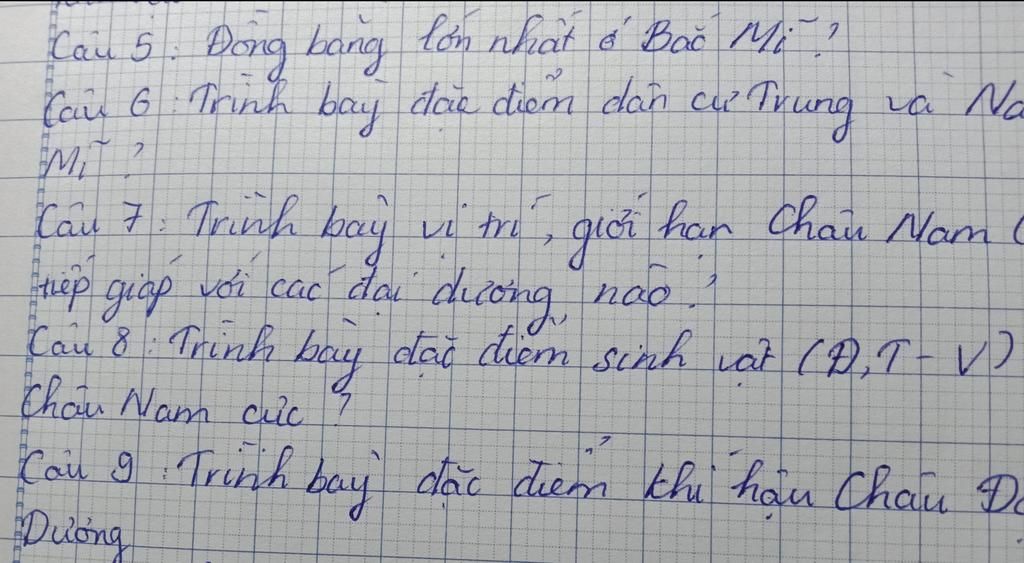 Câu 5: Đồng bằng lớn nhất ở Bắc Mĩ?
Câu 6: Trình bày đặc điểm dân cư Trung và Na
Mĩ?
Câu 7: Trình bày vị trí, giới hạn Châu Nam C
tiếp giáp với các đại dương nào?
Câu 8: Trình bày đặc điểm sinh vật (Đ, T-V)
Châu Nam cực?
Câu 9: Trình bày đặc điểm khí hậu Châu Đạ
Dương